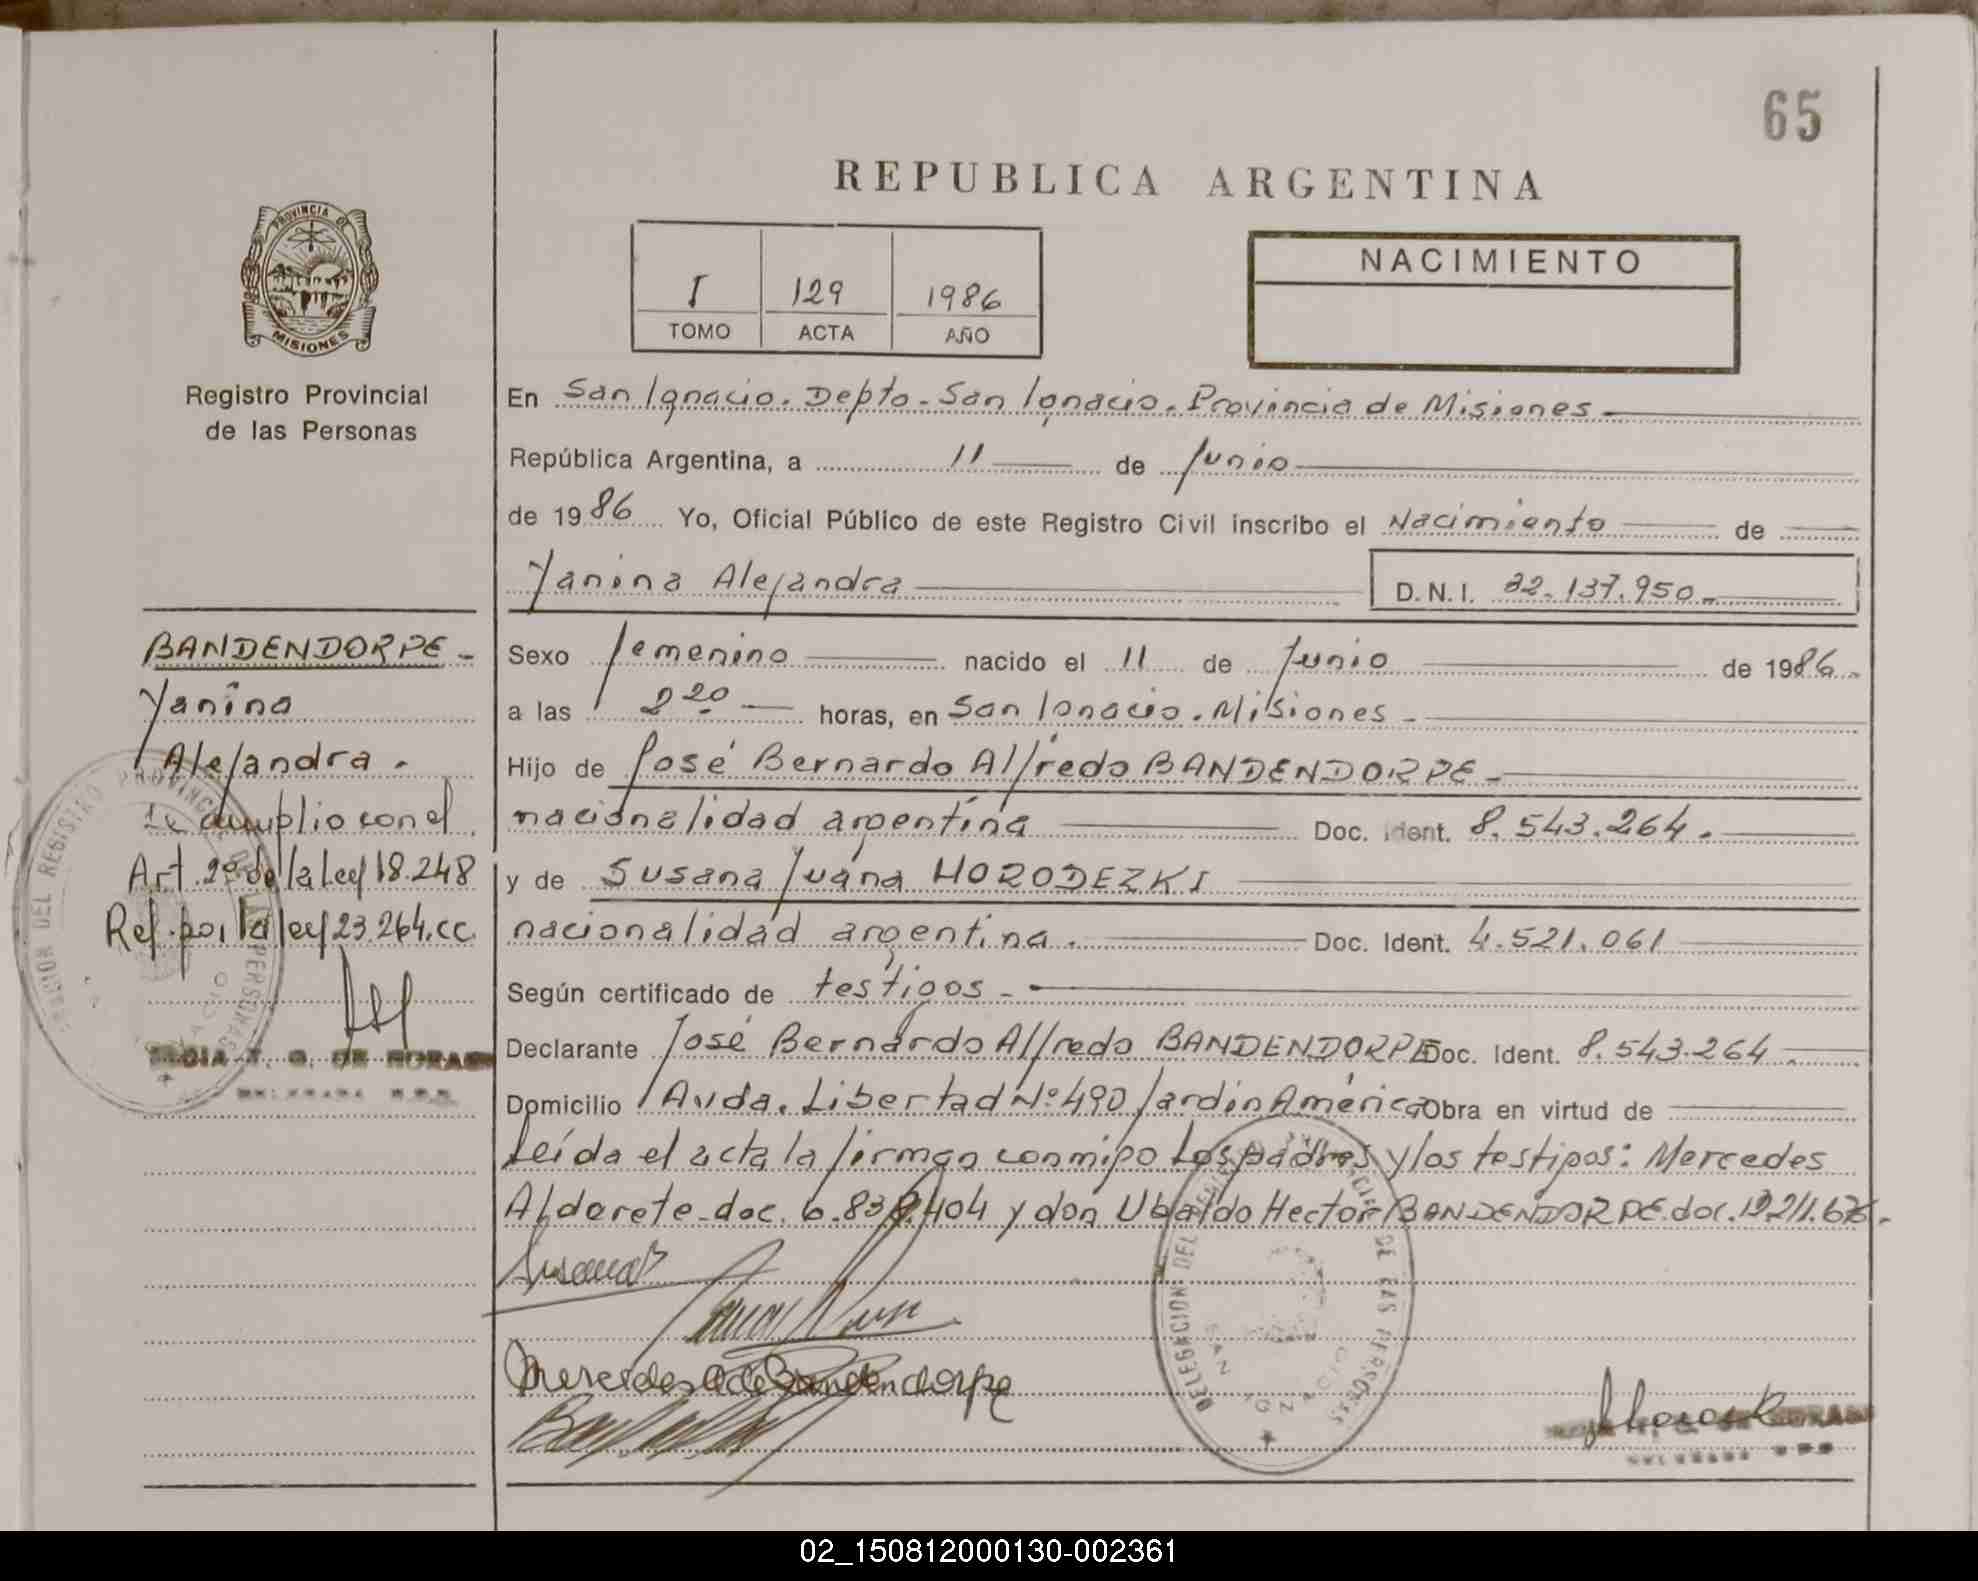 65
REPUBLICA ARGENTINA
PROVINCIA DE
MISIONES
Registro Provincial
de las Personas
I 129 1986
TOMO ACTA AÑO
NACIMIENTO
En San Ignacio. Depto. San Ignacio. Provincia de Misiones
República Argentina, a 11 de Junio
de 1986 Yo, Oficial Público de este Registro Civil inscribo el Nacimiento de
Yanina Alejandra D.N.I. 32.137.950
BANDENDORPE
Yanina
Alejandra.
Se cumplio con el
Art. 2º de la Ley 18.248
Ref. por la ley 23.264.cc.
DE MORAS
Sexo femenino nacido el 11 de Junio de 1986
a las 2 20 horas, en San Ignacio. Misiones
Hijo de José Bernardo Alfredo BANDENDORPE
nacionalidad argentina Doc. Ident. 8.543.264.
y de Susana Juana HORODEZKI
nacionalidad argentina. Doc. Ident. 4.521.061
Según certificado de testigos
Declarante José Bernardo Alfredo BANDENDORPE Doc. Ident. 8.543.264
Domicilio Avda. Libertad Nº 490 Jardin América Obra en virtud de
Leída el acta la firman conmigo los padres y los testigos: Mercedes
Alderete doc. 6.838.404 y don Ubaldo Hector BANDENDORPE doc. 12.211.676.
Susana
Mercedes A de Bandendorpe
DELEGACION DEL REGISTRO PROVINCIAL DE LAS PERSONAS
SAN IGNACIO
02_150812000130-002361